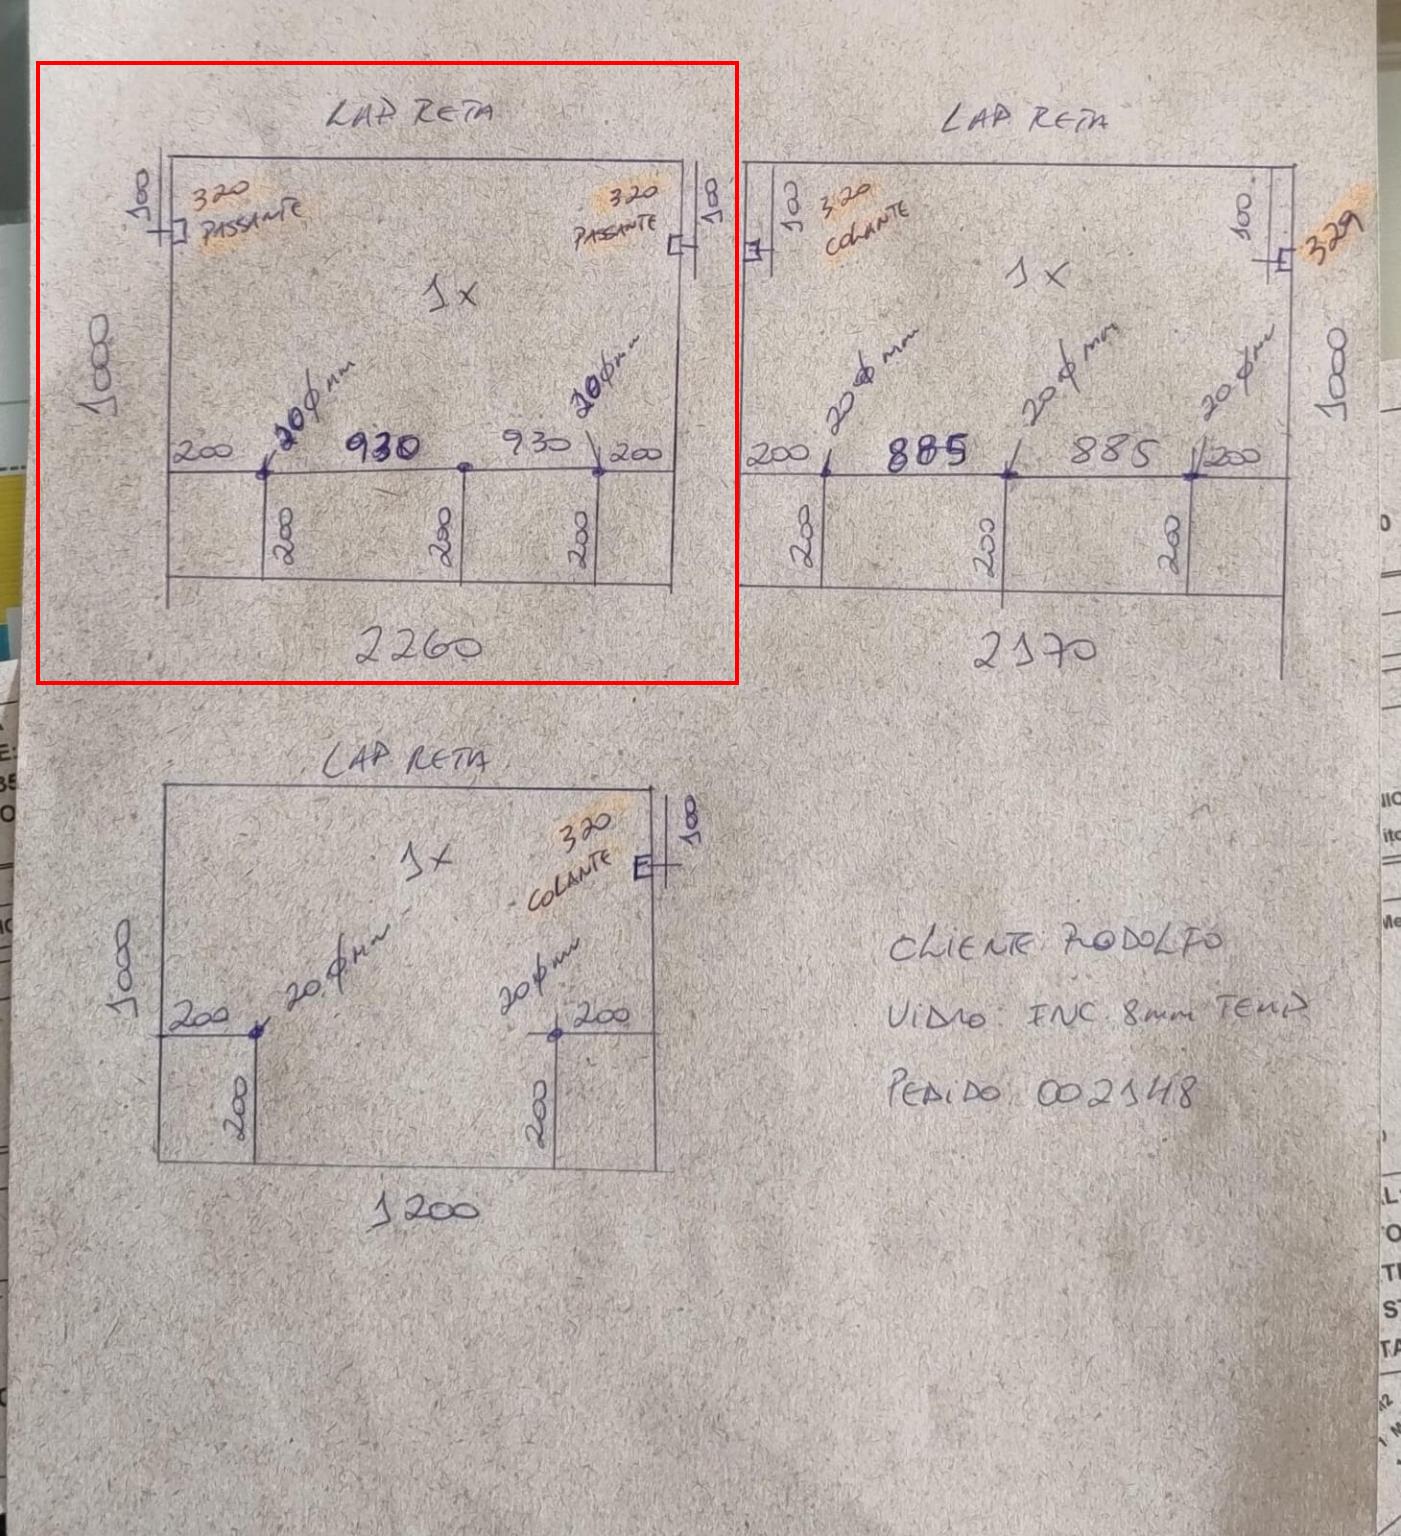 LAP RETA
100
320
PASSANTE
320
PASSANTE
100
1x
1000
20ϕmm
20ϕmm
200
930
930
200
200
200
200
2260
LAP RETA
100
320
COLANTE
100
329
1x
1000
20ϕmm
20ϕmm
20ϕmm
200
885
885
200
200
200
200
2170
LAP RETA
1x
320
COLANTE
100
1000
20ϕmm
20ϕmm
200
200
200
200
1200
CLIENTE: RODOLFO
VIDRO: INC. 8mm TEMP.
PEDIDO: 002148